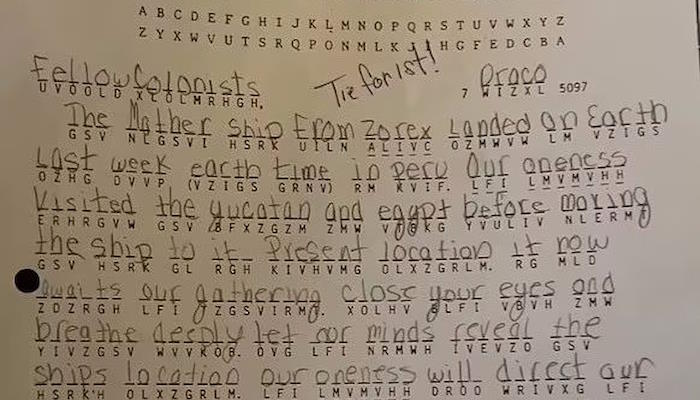 A B C D E F G H I J K L M N O P Q R S T U V W X Y Z
Z Y X W V U T S R Q P O N M L K J I H G F E D C B A
Fellow Colonists Tie for 1st! Draco
U V O O L D X L O L M R H G H, 7 W I Z X L 5097
The Mother ship from Zorex Landed on Earth
G S V N L G S V I H S R K U I L N A L I V C O Z M W V W L M V Z I G S
Last week earth time in peru Our oneness
O Z H G D V V P (V Z I G S G R N V) R M K V I F. L F I L M V M V H H
Visited the yucatan and egypt before moving
E R H R G V W G S V B F X Z G Z M Z M W V T B K G Y V U L I V N L E R M T
the ship to it_ Present location it now
G S V H S R K G L R G H K I V H V M G O L X Z G R L M. R G M L D
awaits our gathering close your eyes and
Z D Z R G H L F I T Z G S V I R M T. X O L H V B L F I V B V H Z M W
breathe deeply let our minds reveal the
Y I V Z G S V W V V K O B. O V G L F I N R M W H I V E V Z O G S V
ships location our oneness will direct our
H S R K'H O L X Z G R L M. L F I L M V M V H H D R O O W R I V X G L F I